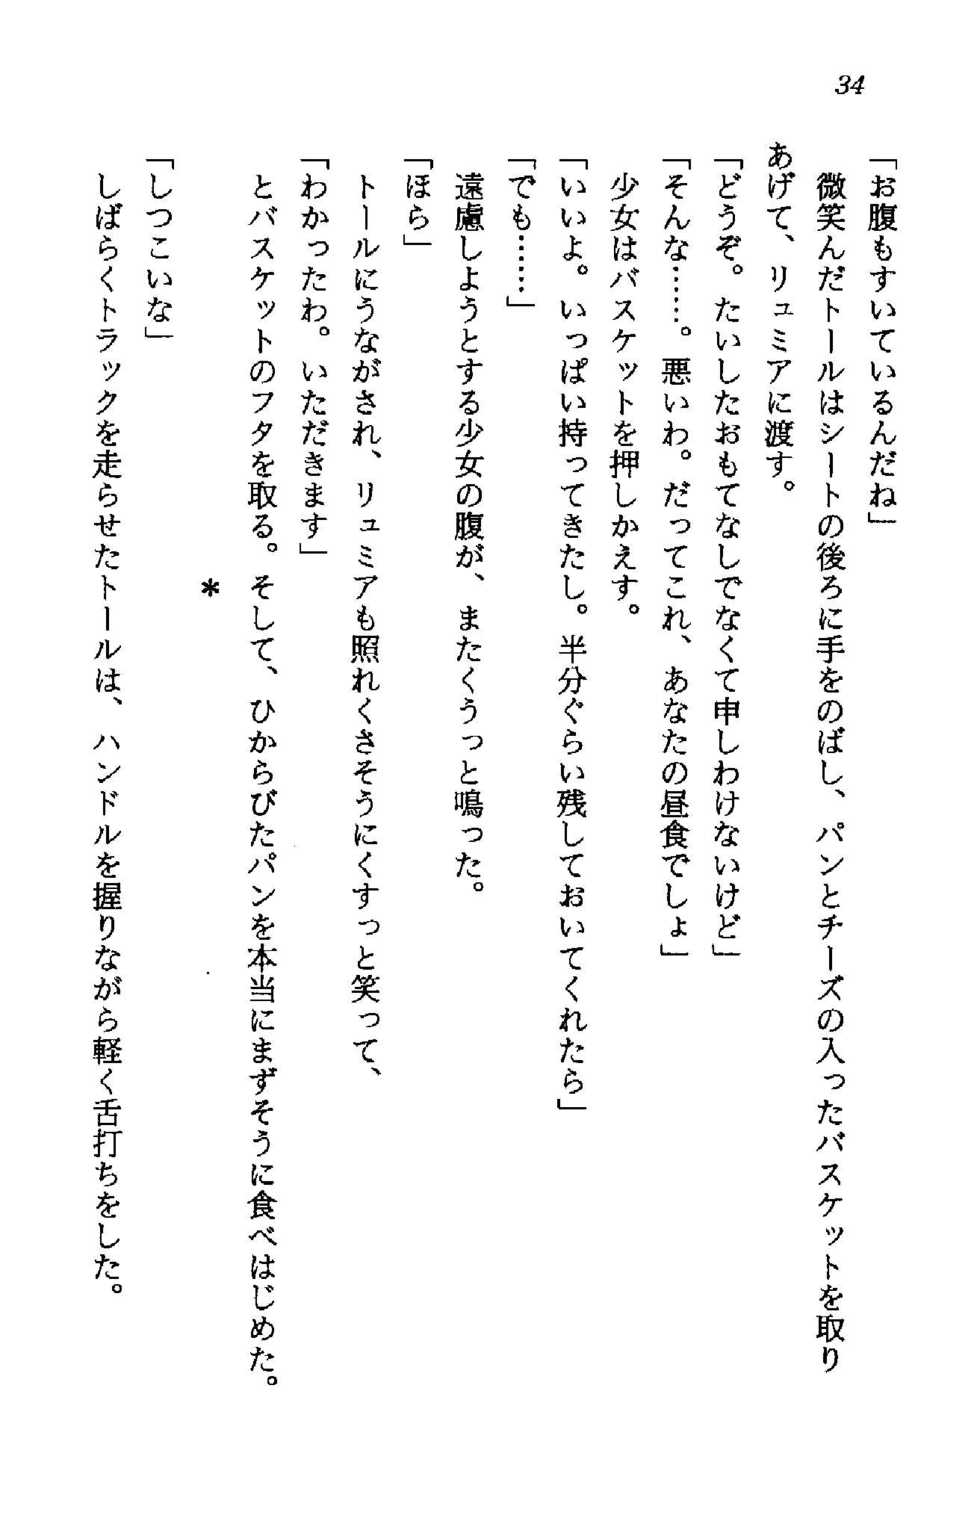 34
「お腹もすいているんだね」
微笑んだトールはシートの後ろに手をのばし、パンとチーズの入ったバスケットを取り
あげて、リュミアに渡す。
「どうぞ。たいしたおもてなしでなくて申しわけないけど」
「そんな……。悪いわ。だってこれ、あなたの昼食でしょ」
少女はバスケットを押しかえす。
「いいよ。いっぱい持ってきたし。半分ぐらい残しておいてくれたら」
「でも……」
遠慮しようとする少女の腹が、またくうっと鳴った。
「ほら」
トールにうながされ、リュミアも照れくさそうにくすっと笑って、
「わかったわ。いただきます」
とバスケットのフタを取る。そして、ひからびたパンを本当にまずそうに食べはじめた。
*
「しつこいな」
しばらくトラックを走らせたトールは、ハンドルを握りながら軽く舌打ちをした。